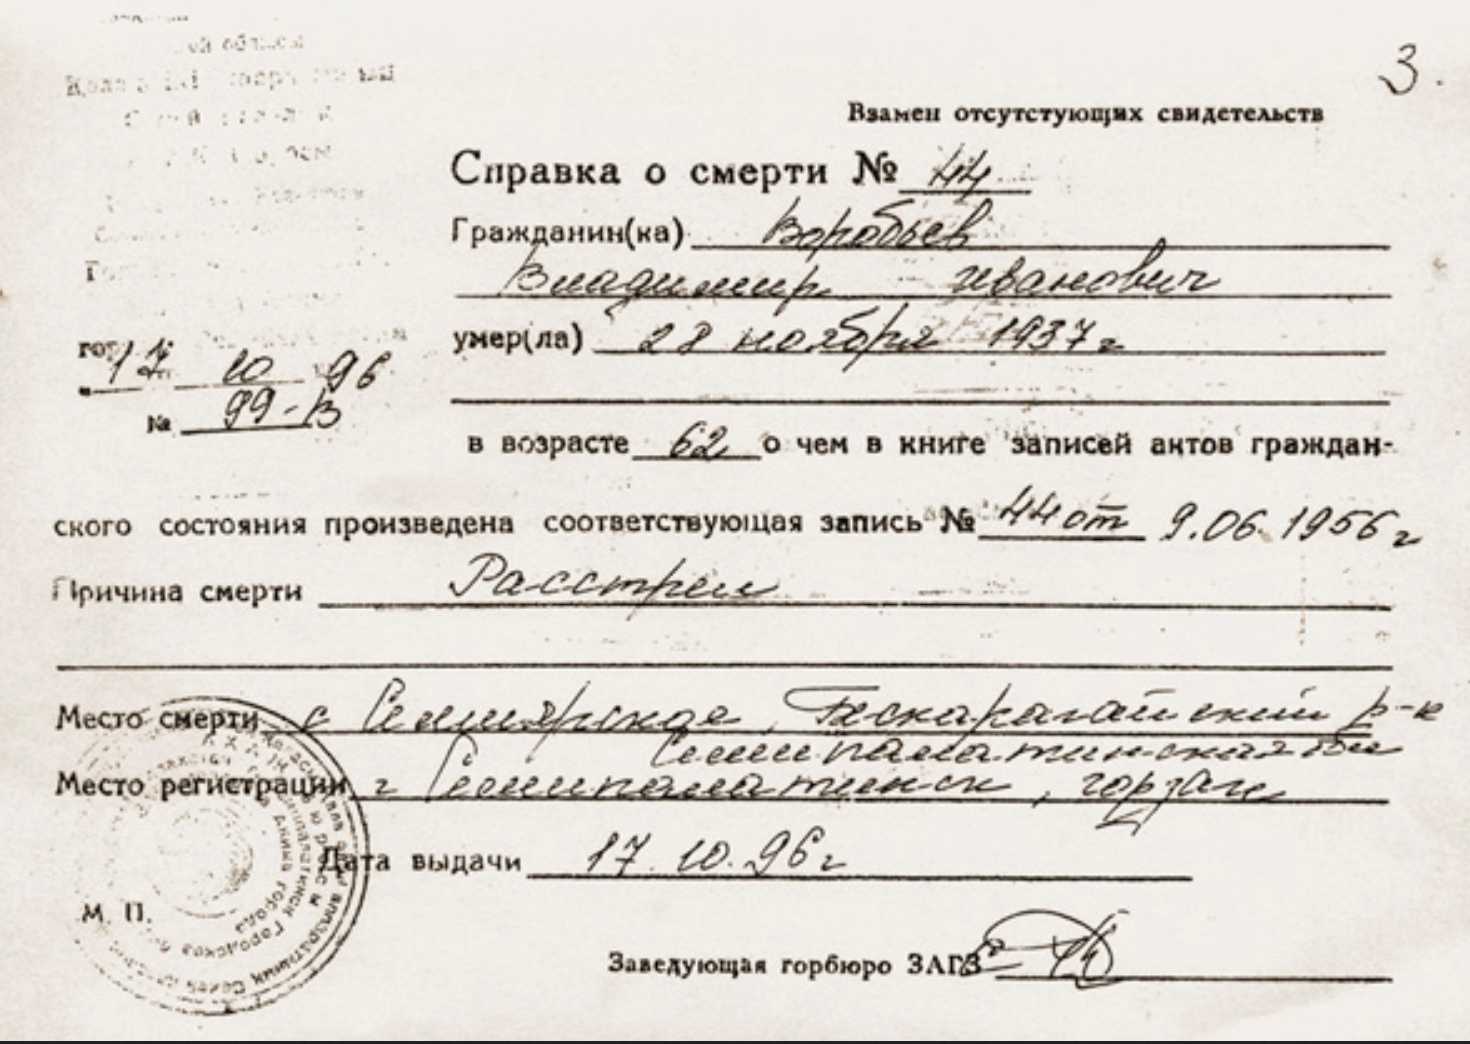 3.
Взамен отсутстующих свидетельств
Справка о смерти № 44
Гражданин(ка) Воробьев
Владимир Иванович
умер(ла) 28 ноября 1937 г
17 10 96
№ 99-В
в возрасте 62 о чем в книге записей актов граждан-
ского состояния произведена соответствующая запись № 44 от 9.06.1956 г
Причина смерти Расстрел
Место смерти с Семиярское, Бескарагайский р-н
Семипалатинская
Место регистрации г Семипалатинск, горзагс
Дата выдачи 17.10.96 г
М. П.
Заведующая горбюро ЗАГЗ